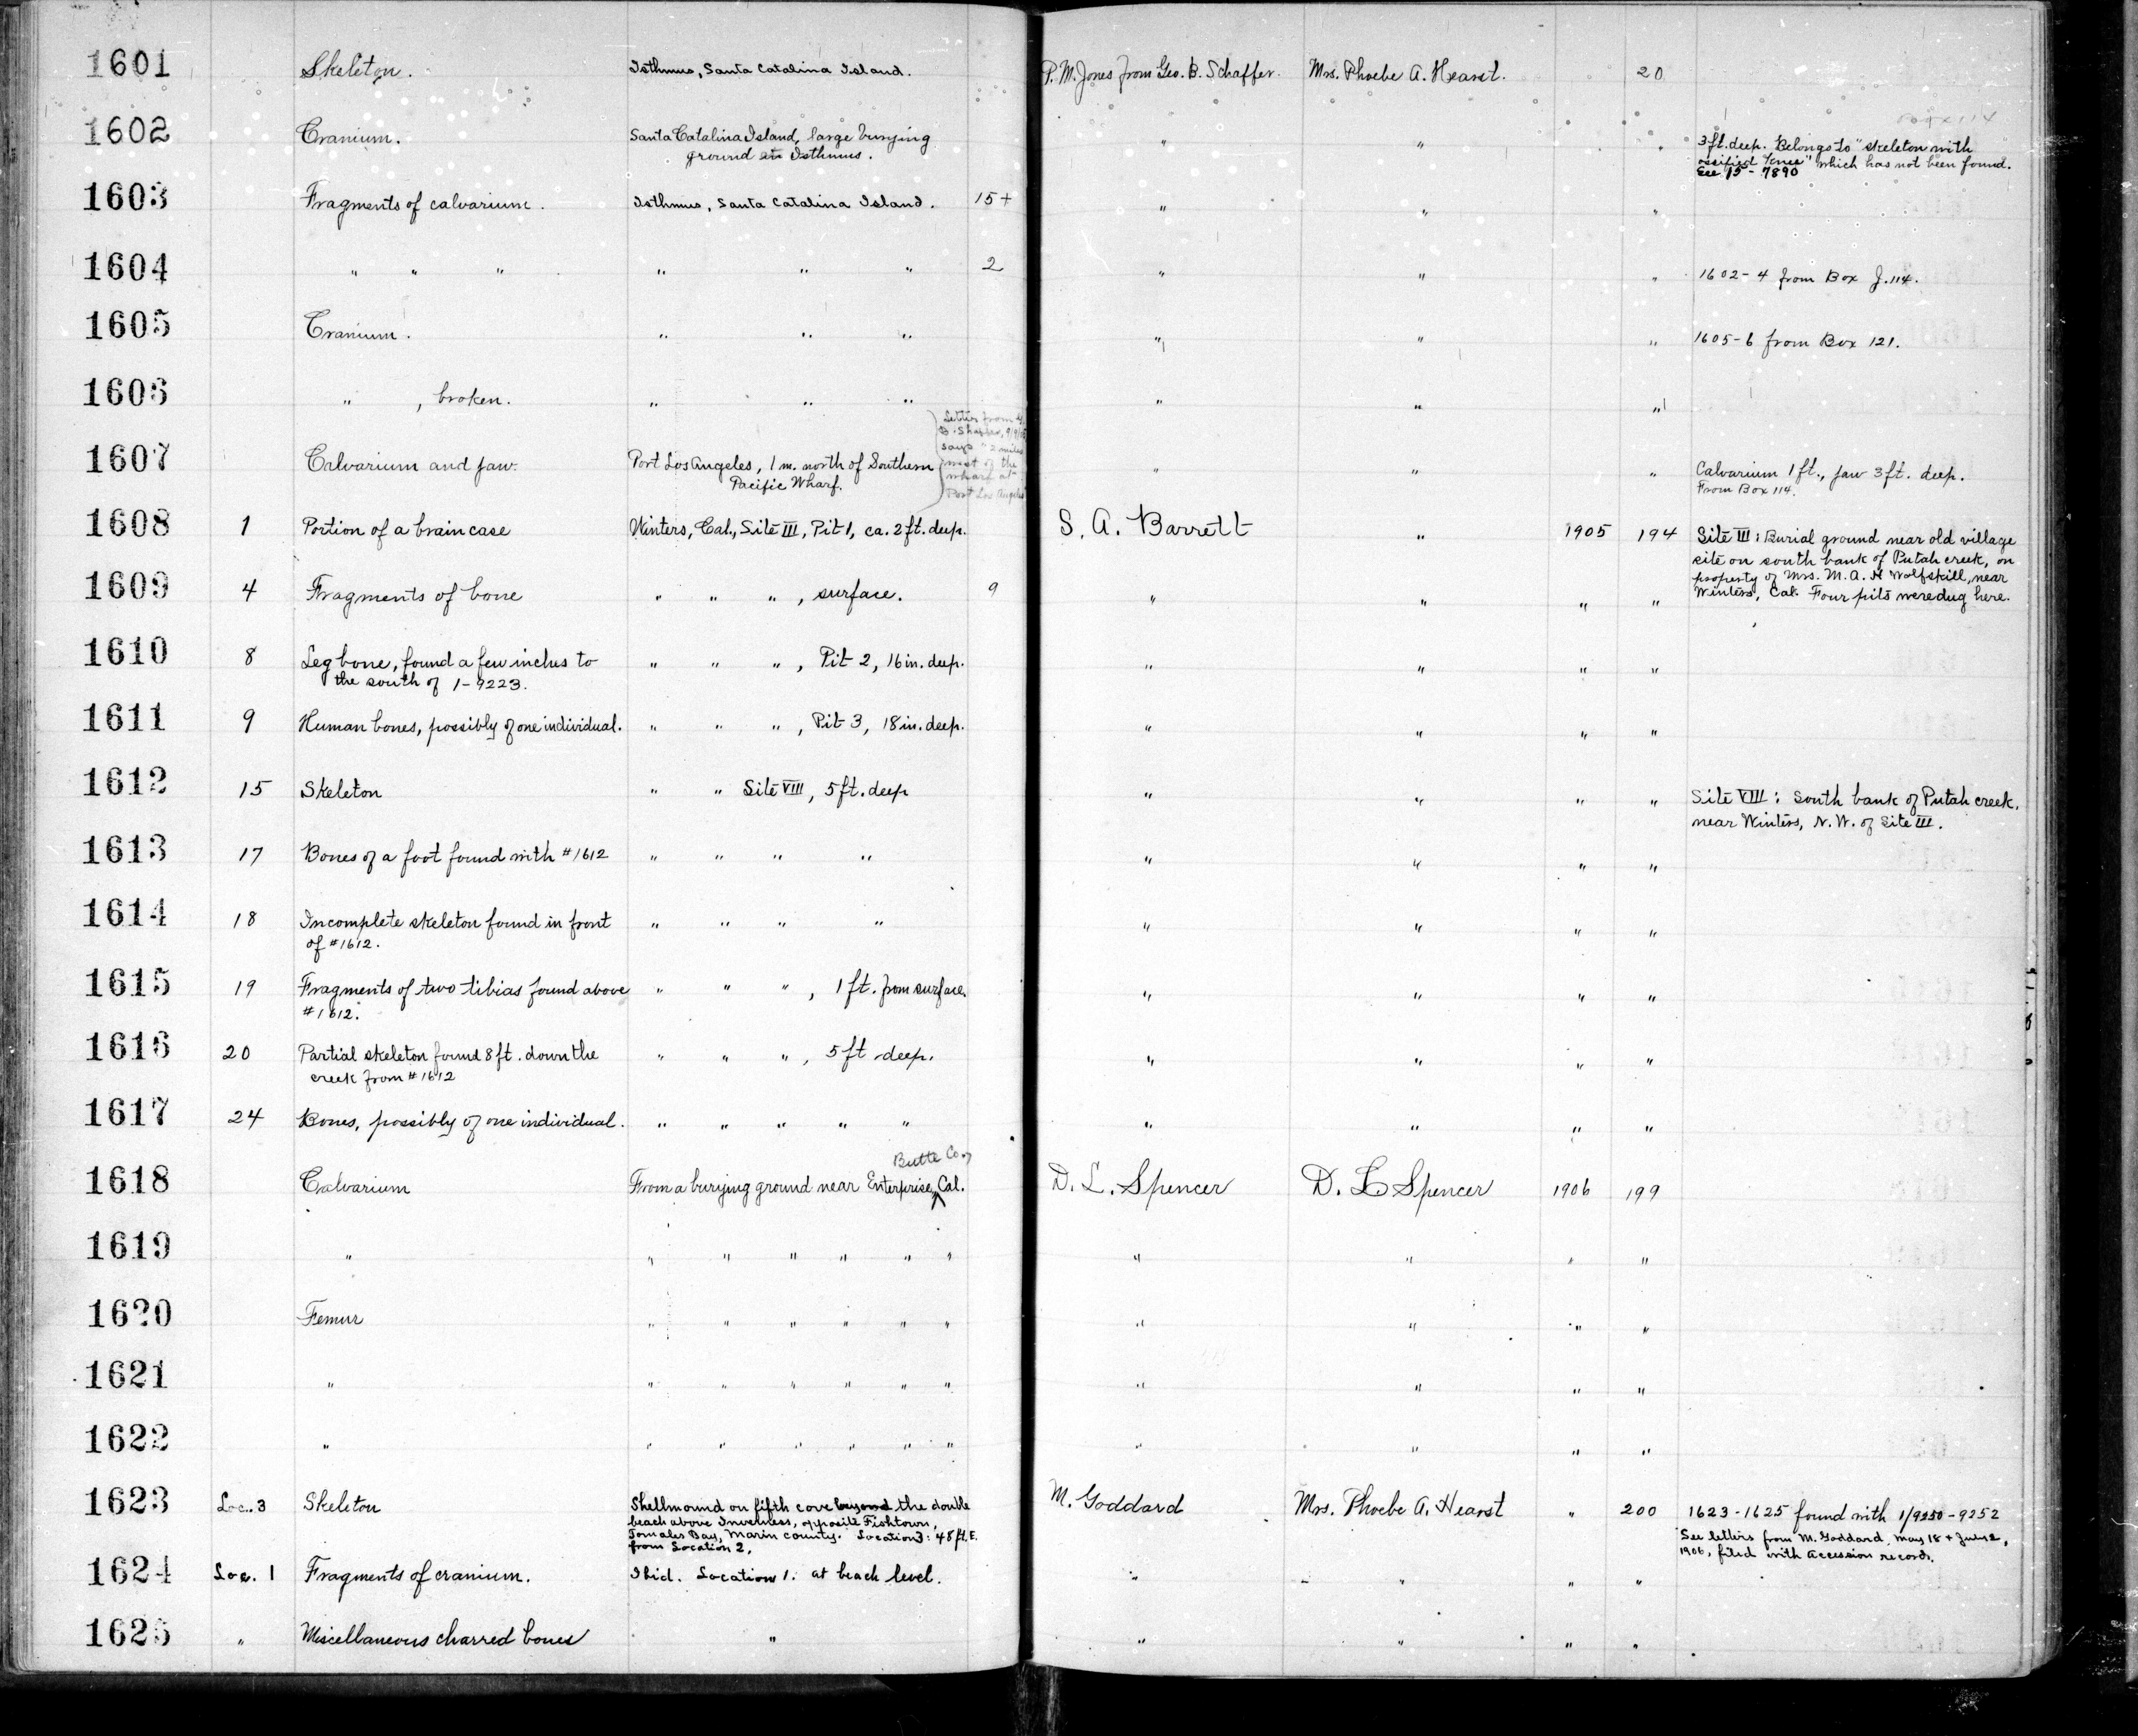 1601 Skeleton. Isthmus, Santa Catalina Island. P. M. Jones from Geo. B. Schaffer. Mrs. Phoebe A. Hearst. 20
Box 114
1602 Cranium. Santa Catalina Island, large burying " " " 3 ft. deep. Belongs to "skeleton with
ground at Isthmus. ossified knee" which has not been found.
See 15-7890
1603 Fragments of calvarium. Isthmus, Santa Catalina Island. 15+ " " "
1604 " " " " " " 2 " " " 1602-4 from Box J.114.
1605 Cranium. " " " " " " 1605-6 from Box 121.
1606 " , broken. " " " " " "
Letter from
B. Shaffer, 9/9/05
says "2 miles
west of the
wharf at
Port Los Angeles
1607 Calvarium and jaw. Port Los Angeles, 1 m. north of Southern " " " Calvarium 1 ft., jaw 3 ft. deep.
Pacific Wharf. From Box 114.
1608 1 Portion of a brain case Winters, Cal., Site III, Pit 1, ca. 2 ft. deep. S. A. Barrett " 1905 194 Site III: Burial ground near old village
site on south bank of Putah creek, on
property of Mrs. M. A. Wolfskill, near
Winters, Cal. Four pits were dug here.
1609 4 Fragments of bone " " " , surface. 9 " " " "
1610 8 Leg bone, found a few inches to " " " , Pit 2, 16 in. deep. " " " "
the south of 1-9223.
1611 9 Human bones, possibly of one individual. " " " , Pit 3, 18 in. deep. " " " "
1612 15 Skeleton " " Site VIII, 5 ft. deep " " " " Site VIII: South bank of Putah creek,
near Winters, N.W. of Site III.
1613 17 Bones of a foot found with #1612 " " " " " " " "
1614 18 Incomplete skeleton found in front " " " " " " " "
of #1612.
1615 19 Fragments of two tibias found above " " " , 1 ft. from surface. " " " "
#1612.
1616 20 Partial skeleton found 8 ft. down the " " " , 5 ft deep. " " " "
creek from #1612
1617 24 Bones, possibly of one individual. " " " " " " " " "
Butte Co.,
1618 Calvarium From a burying ground near Enterprise, Cal. D. L. Spencer D. L. Spencer 1906 199
1619 " " " " " " " " " " "
1620 Femur " " " " " " " " " "
1621 " " " " " " " " " " "
1622 " " " " " " " " " " "
1623 Loc. 3 Skeleton Shellmound on fifth cove beyond the double M. Goddard Mrs. Phoebe A. Hearst " 200 1623-1625 found with 1/9250-9252
beach above Inverness, opposite Fishtown, See letters from M. Goddard, May 18 + June 2,
Tomales Bay, Marin County. Location 3: 48 ft. E. 1906, filed with Accession records.
from Location 2.
1624 Loc. 1 Fragments of cranium. Ibid. Location 1. at beach level. " " " "
1625 " Miscellaneous charred bones " " " " "